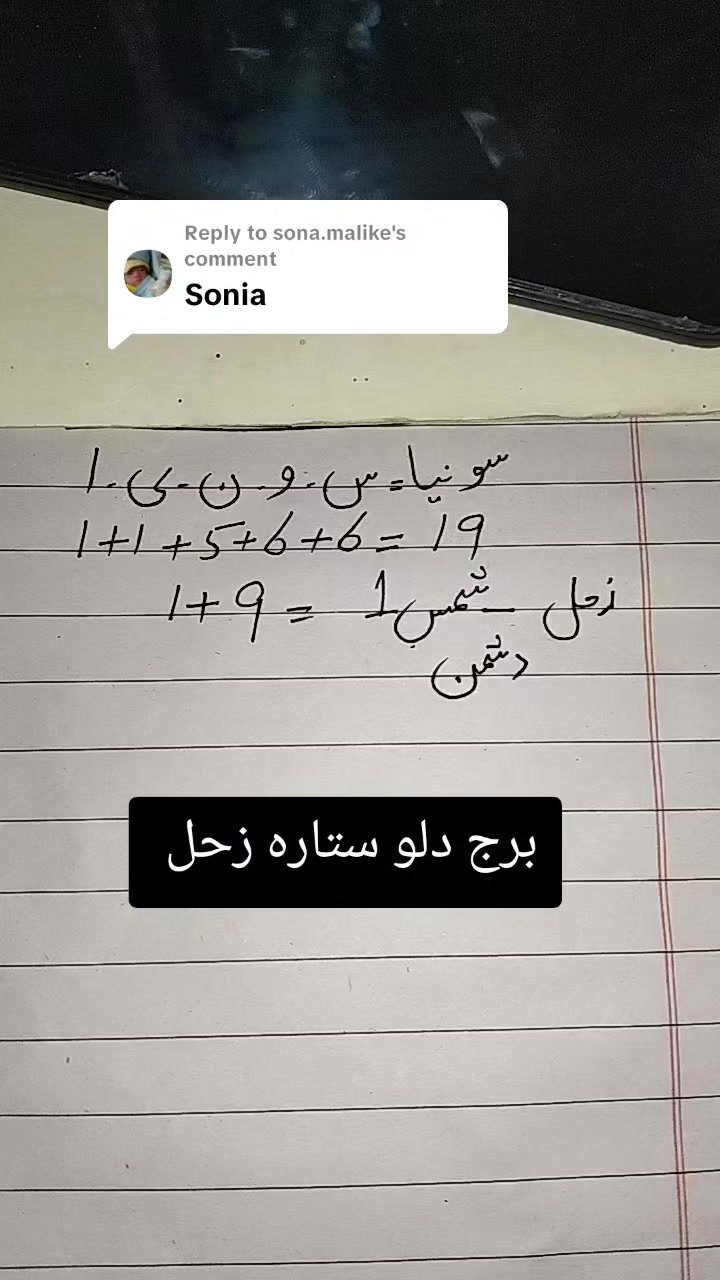 Reply to sona.malike's
comment
Sonia
سونیا = س - و - ن - ی - ا
1+1+5+6+6=19
1+9= 1 شمس _ زحل
دشمن
برج دلو ستاره زحل